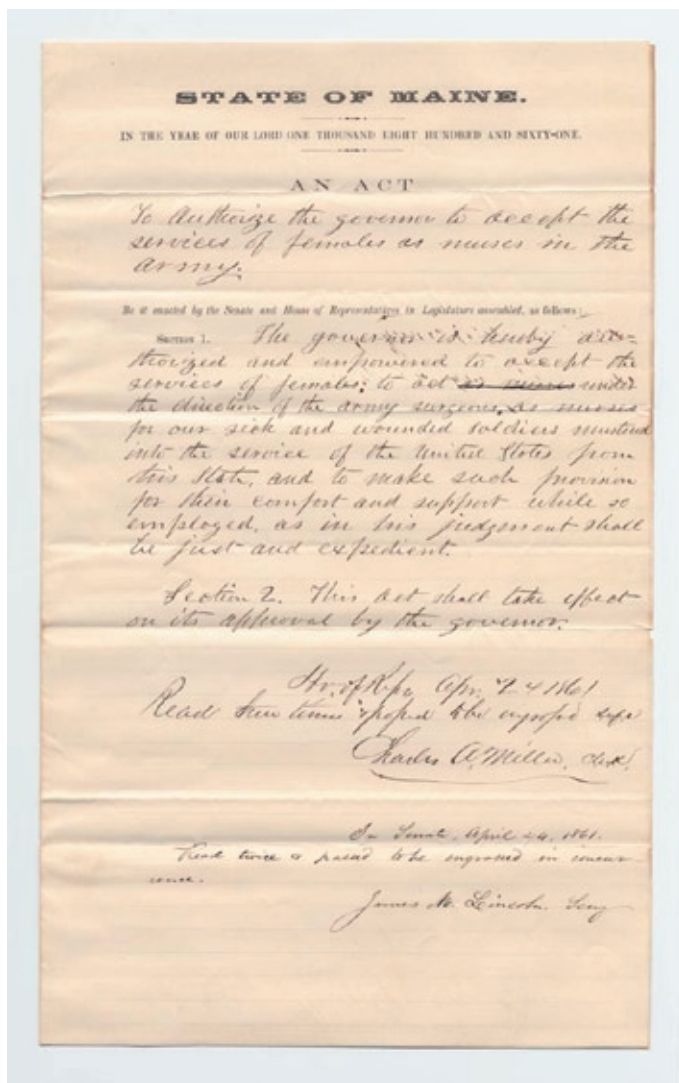 STATE OF MAINE.
IN THE YEAR OF OUR LORD ONE THOUSAND EIGHT HUNDRED AND SIXTY-ONE.
AN ACT
To Authorize the governor to accept the
services of females as nurses in the
army.
Be it enacted by the Senate and House of Representatives in Legislature assembled, as follows:
SECTION 1. The governor is hereby au=
thorized and empowered to accept the
services of females, to act as nurses under
the direction of the army surgeons, as nurses
for our sick and wounded soldiers mustered
into the service of the United States from
this State, and to make such provision
for their comfort and support while so
employed, as in his judgment shall
be just and expedient.
Section 2. This act shall take effect
on its approval by the governor.
Ho. of Reps. Apr. 24 1861
Read three times & passed to be engrossed
Charles A. Miller, clerk.
In Senate, April 24, 1861.
Read twice & passed to be engrossed in concur
rence.
James M. Lincoln, Secy